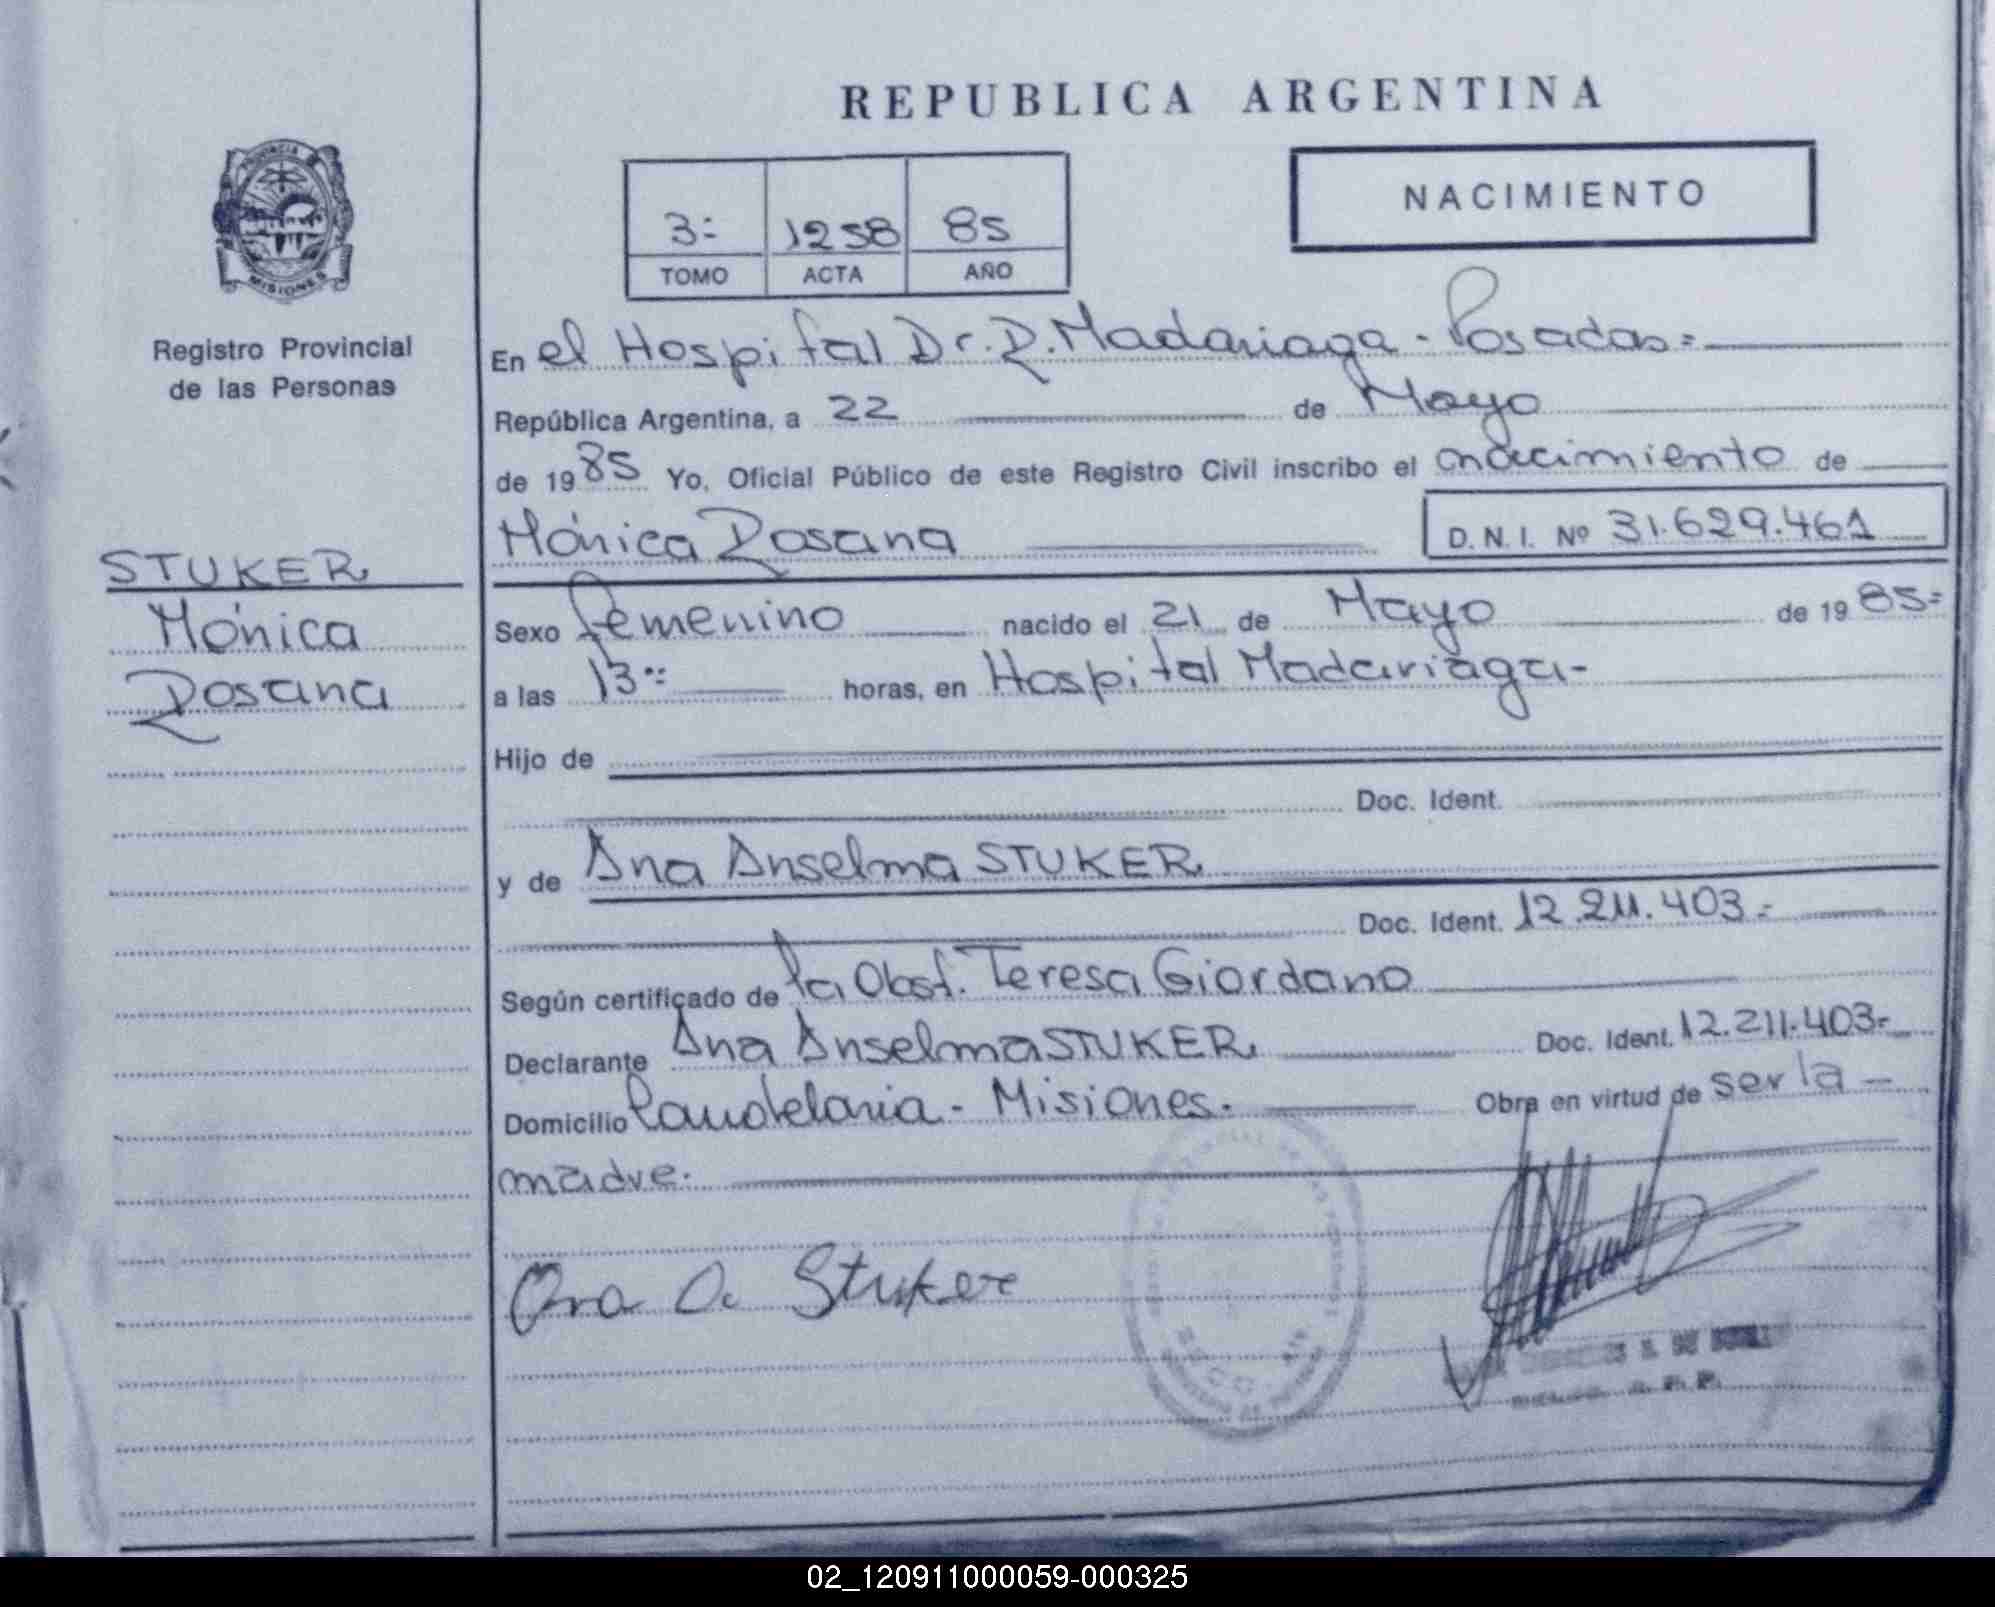 REPUBLICA ARGENTINA
PROVINCIA
MISIONES
Registro Provincial
de las Personas
3=
1258
85
TOMO
ACTA
AÑO
NACIMIENTO
En el Hospital Dr. R. Madariaga - Posadas=
República Argentina, a 22 de Mayo
de 1985 Yo, Oficial Público de este Registro Civil inscribo el nacimiento de
Mónica Rosana
D. N. I. Nº 31.629.461
STUKER
Mónica
Rosana
Sexo femenino nacido el 21 de Mayo de 19 85=
a las 13 horas, en Hospital Madariaga-
Hijo de
Doc. Ident.
y de Ana Anselma STUKER
Doc. Ident. 12.211.403.-
Según certificado de la Obst. Teresa Giordano
Declarante Ana Anselma STUKER Doc. Ident. 12.211.403-
Domicilio Candelaria - Misiones. Obra en virtud de ser la -
madre.
Ana A. Stuker
02_120911000059-000325